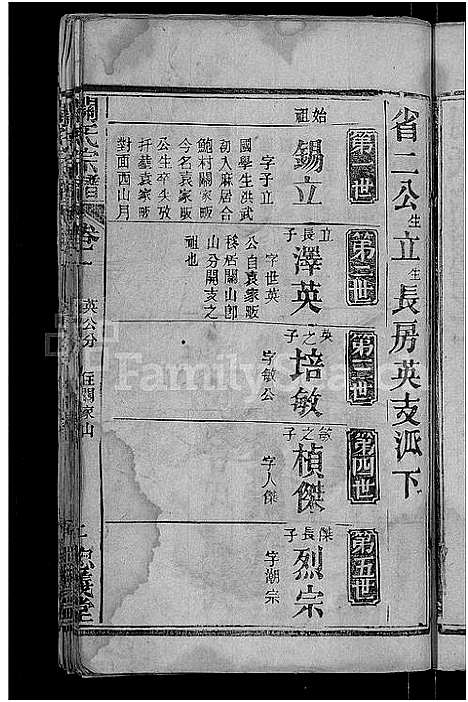 省二公生立生長房英支派下
第一世
始祖
錫立
字子立
國學生洪武
初入麻居合
鮑村關家畈
今名袁家畈
公生卒失攷
扞墓袁家畈
對面西山月
第二世
立長子
澤英
字世英
公自袁家畈
移居關山卽
山分開支之
祖也
第三世
英之子
培敏
字敏公
第四世
敏之子
楨傑
字人傑
第五世
傑長子
烈宗
字潮宗
關氏宗譜
卷一
英公分 住關家山
忠義堂